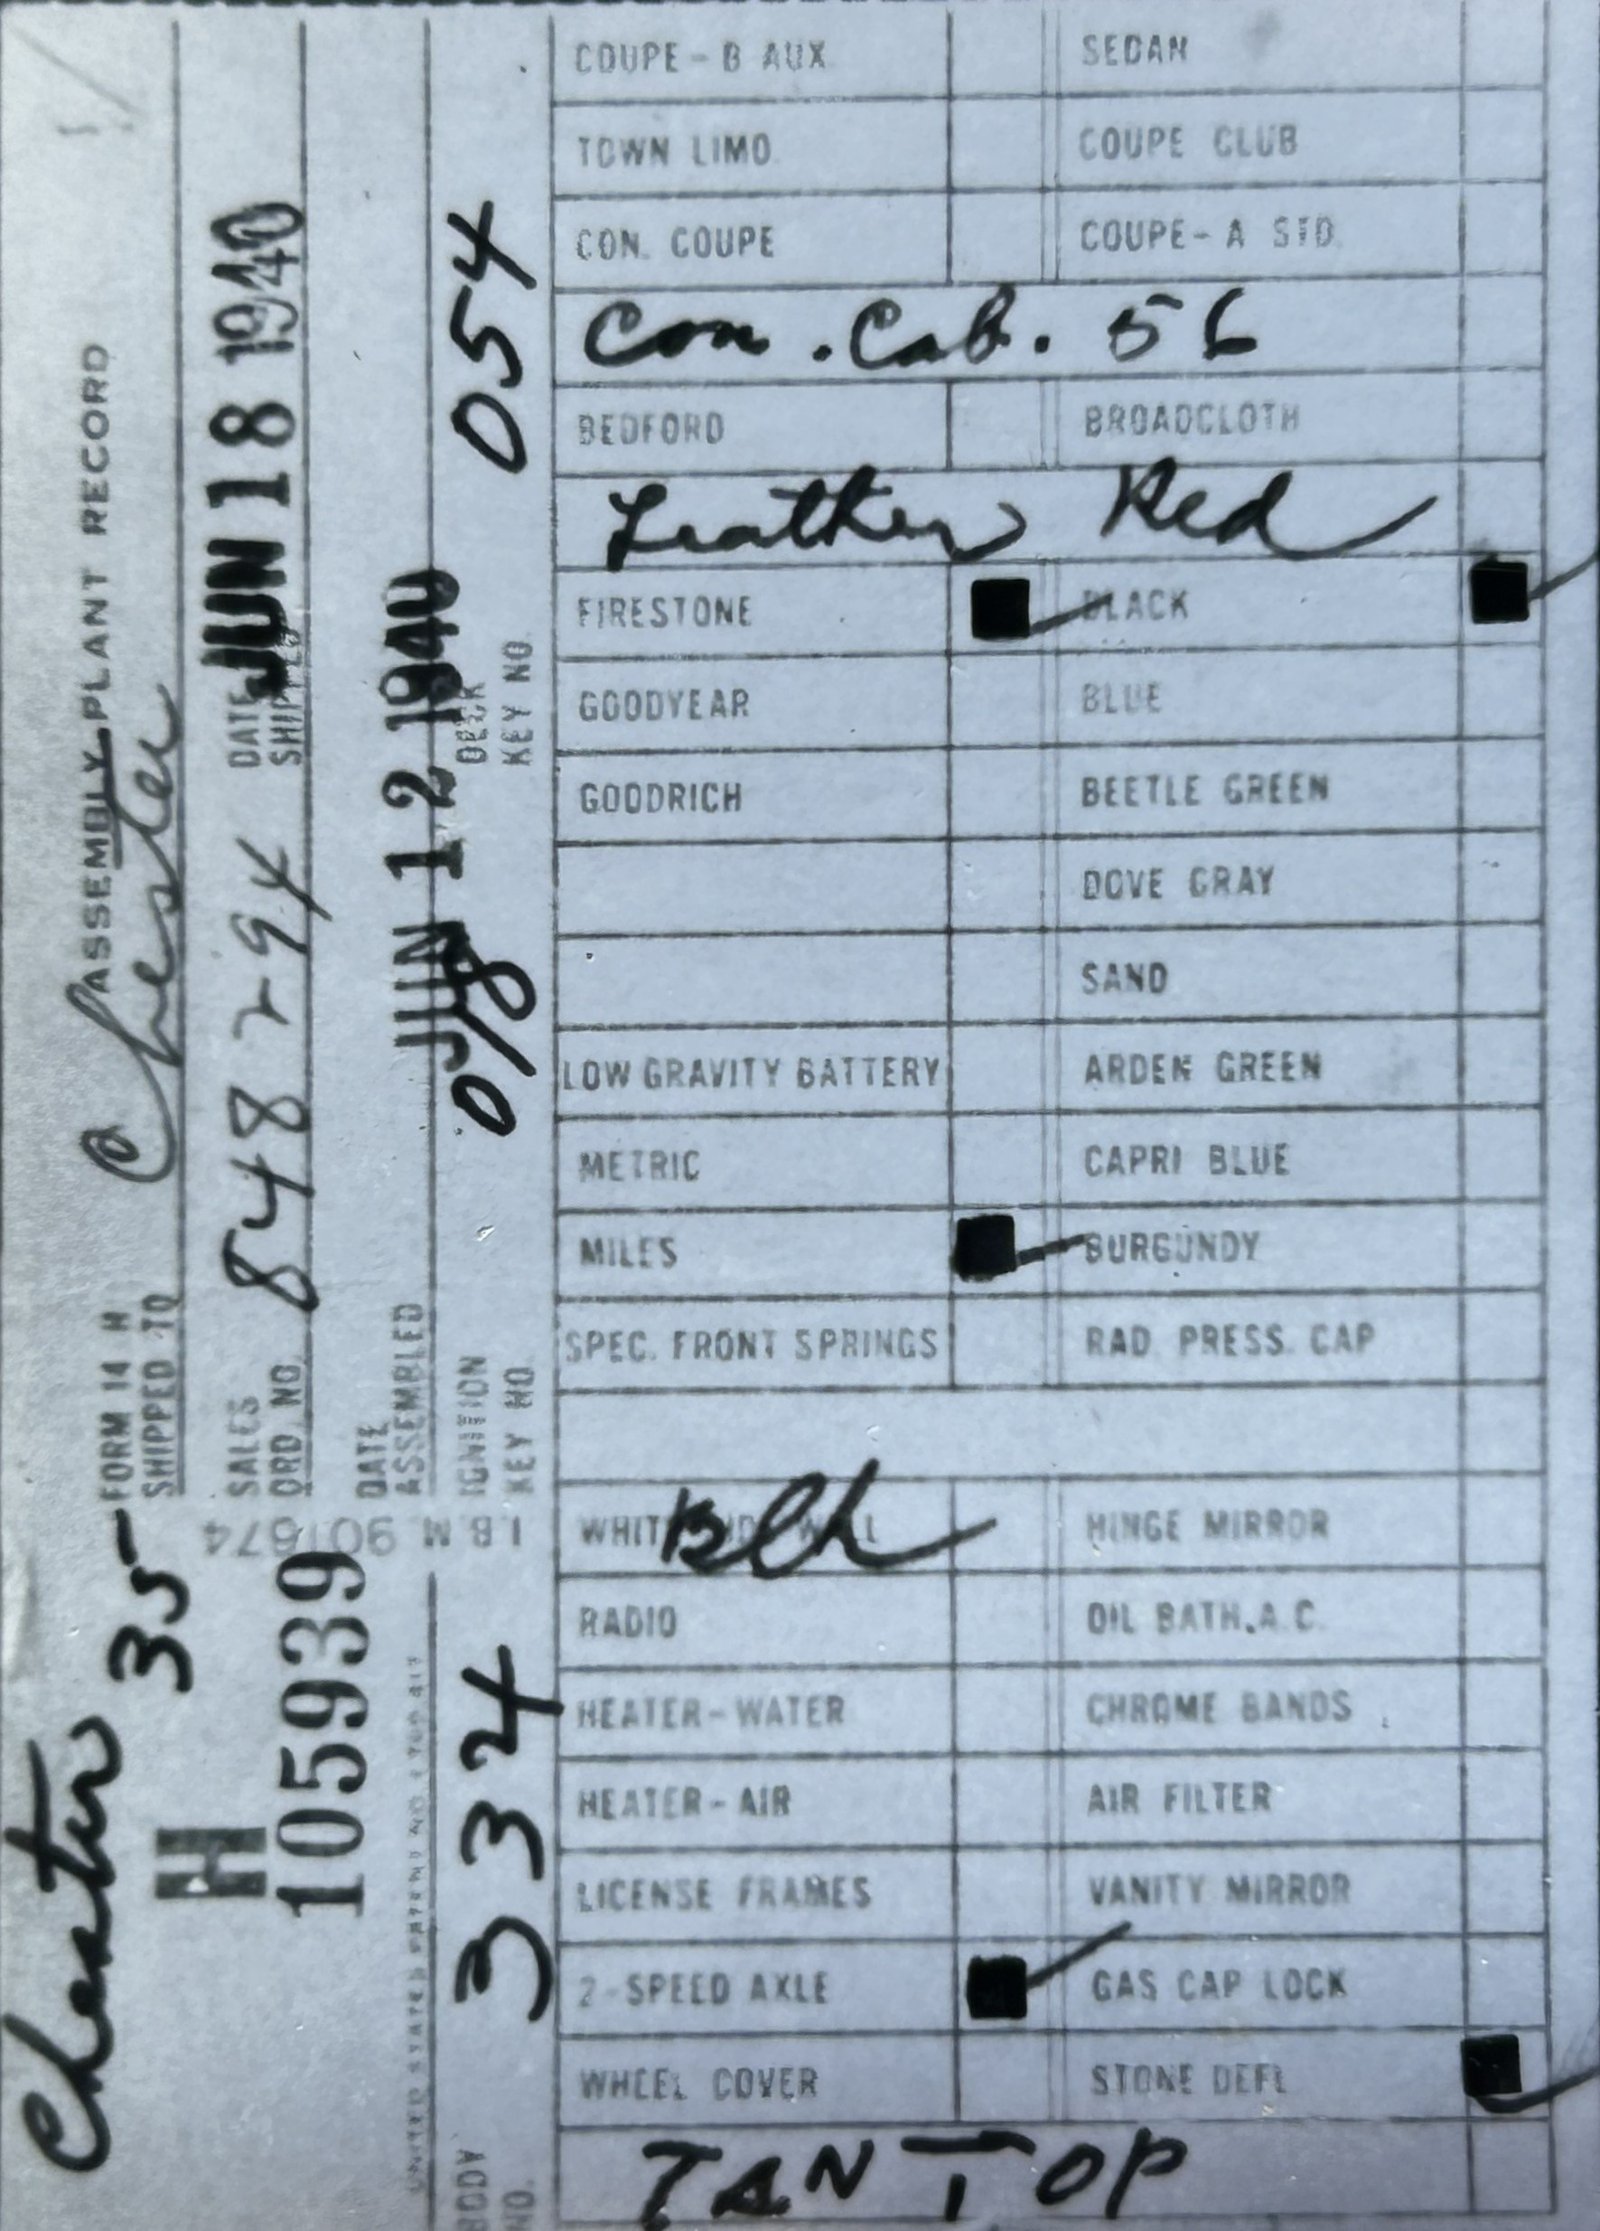 Chester 35
H
105939
FORM 14 H ASSEMBLY PLANT RECORD
SHIPPED TO Chester
SALES ORD. NO. 848294
DATE SHIPPED JUN 18 1940
DATE ASSEMBLED JUN 12 1940
I.B.M. 901674
BODY NO. 334
IGNITION KEY NO. 018
DECK KEY NO. 054
COUPE - B AUX SEDAN
TOWN LIMO COUPE CLUB
CON. COUPE COUPE - A STD.
Con. Cab. 56
BEDFORD BROADCLOTH
Leather Red
FIRESTONE BLACK
GOODYEAR BLUE
GOODRICH BEETLE GREEN
DOVE GRAY
SAND
LOW GRAVITY BATTERY ARDEN GREEN
METRIC CAPRI BLUE
MILES BURGUNDY
SPEC. FRONT SPRINGS RAD. PRESS. CAP
WHITE SIDE WALL Blk HINGE MIRROR
RADIO OIL BATH. A.C.
HEATER - WATER CHROME BANDS
HEATER - AIR AIR FILTER
LICENSE FRAMES VANITY MIRROR
2-SPEED AXLE GAS CAP LOCK
WHEEL COVER STONE DEFL
TAN TOP